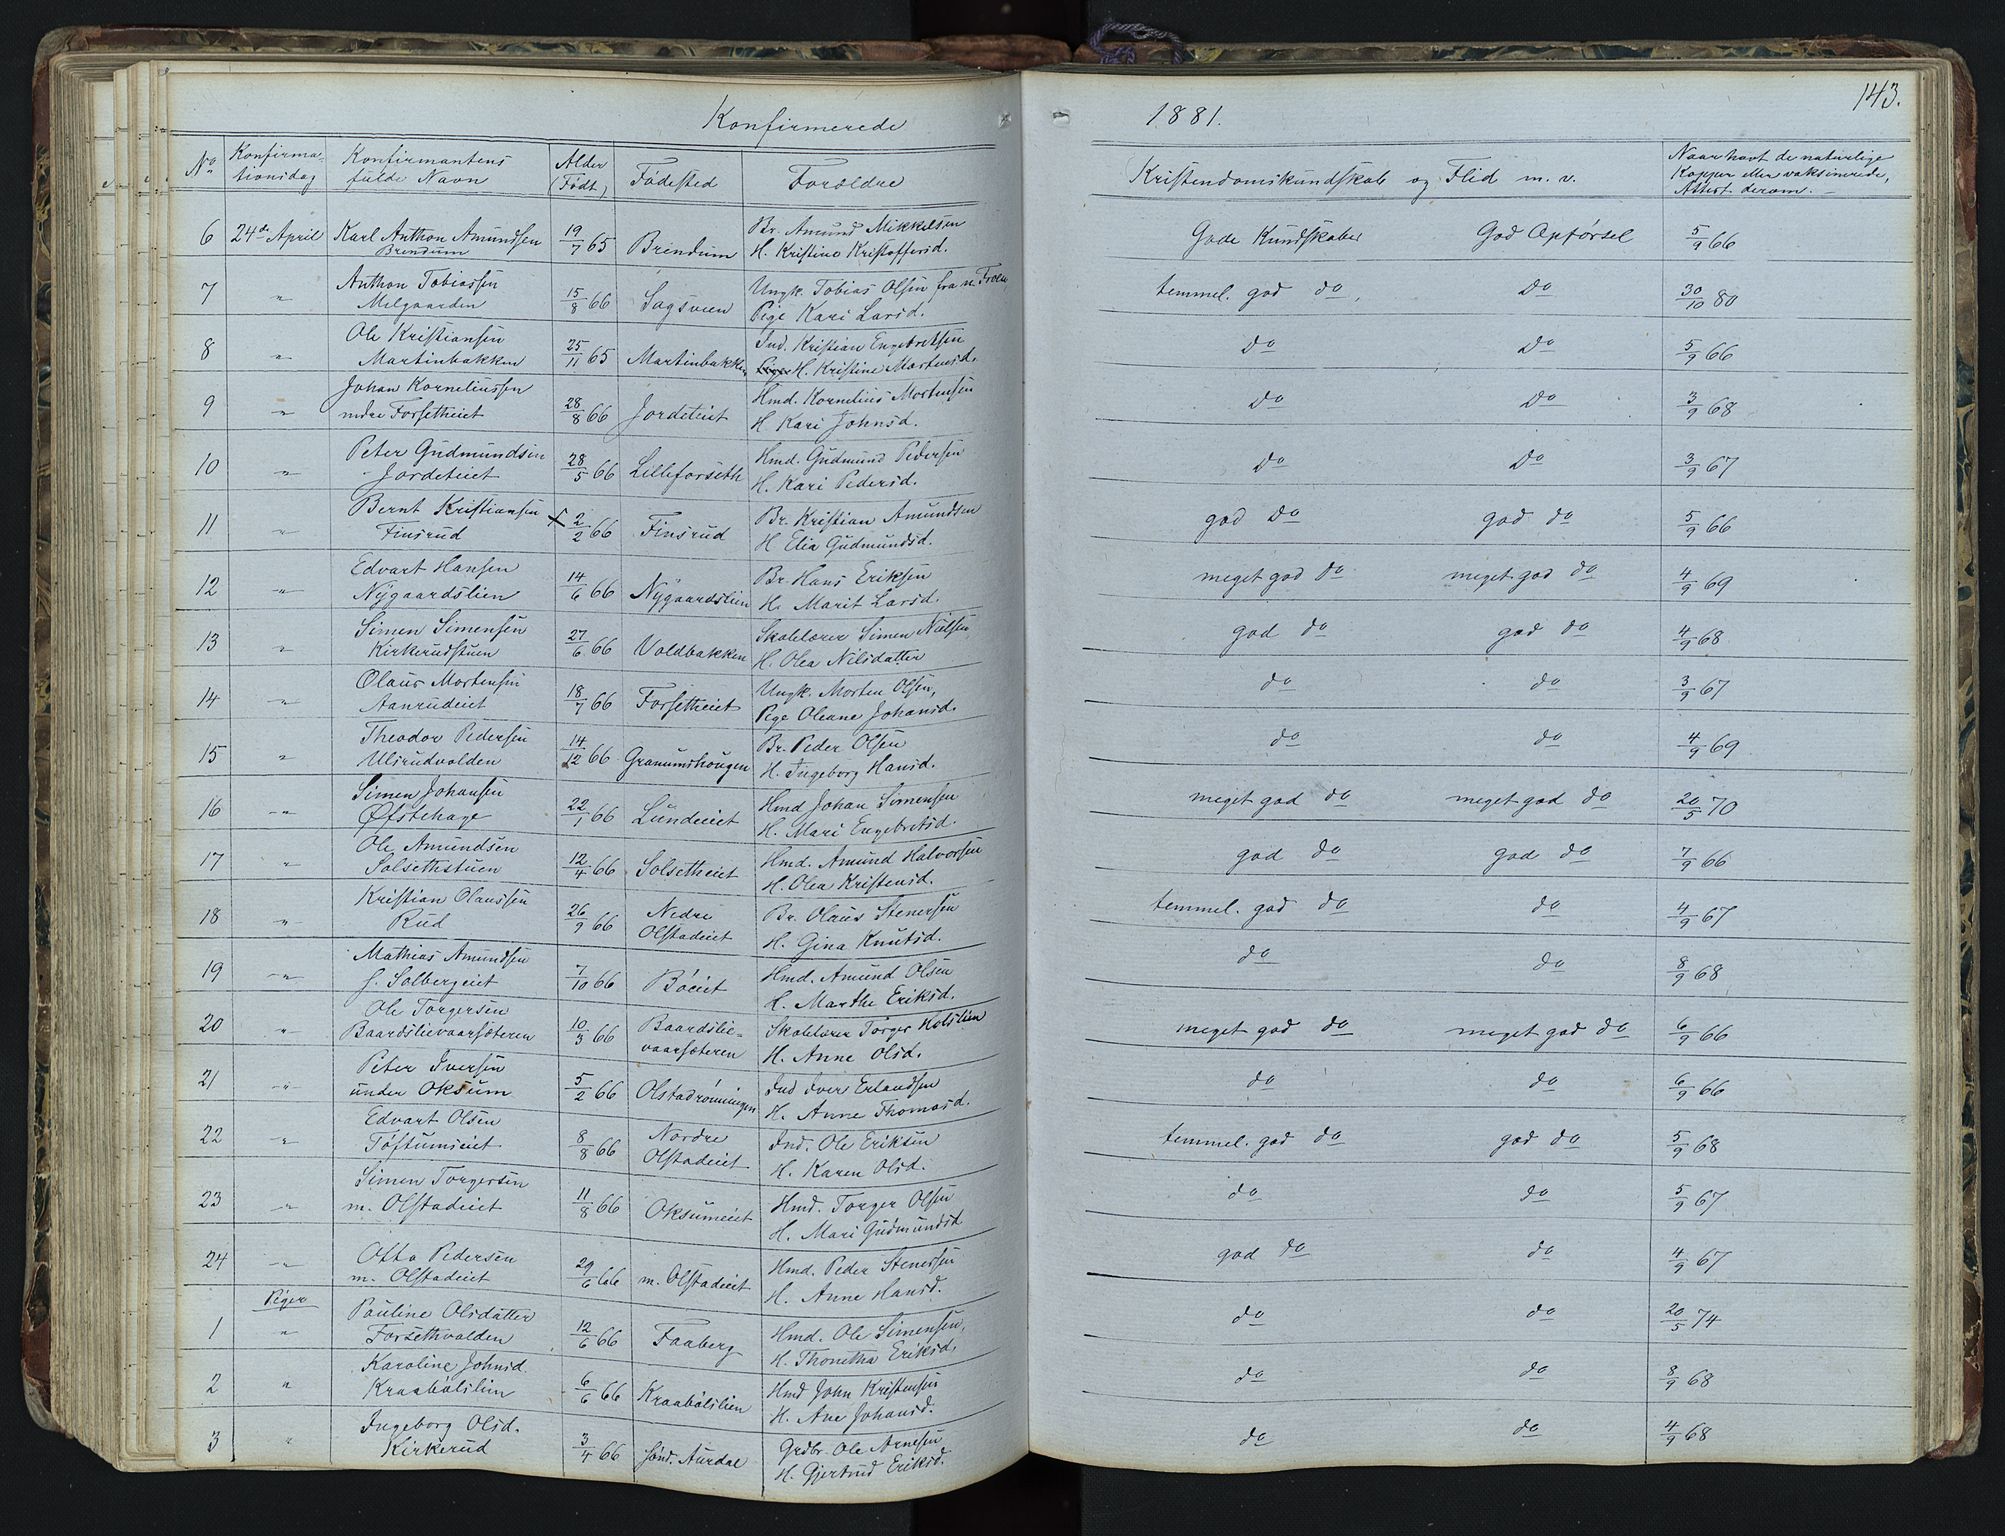 143.
Konfirmerede 1881.
No Konfirmationsdag Konfirmantens fulde Navn Alder (Født) Fødested Forældre Kristendomskundskab og Flid m. v. Naar havt de naturlige Kopper eller vaksinerede, Attest derom.
6 24de April Karl Anthon Amundsen Brendum 19/7 65 Brendum Br. Amund Mikkelsen H. Kristine Kristoffersd. Gode Kundskaber God Opførsel 5/9 66
7 " Anthon Tobiassen Melgaarden 15/8 66 Sagsveen Ungk. Tobias Olsen fra n. Pige Kari Larsd. temmel. god do, do 30/10 80
8 " Ole Kristiansen Martinbakken 25/11 65 Martinbakken Ind. Kristian Engebretsen H. Kristine Mortensd. do do 5/9 66
9 " Johan Korneliussen nedre Forsetheiet 28/8 66 Jordeteiet Hmd. Kornelius Mortensen H. Kari Johnsd. do do 3/9 68
10 " Peter Gudmundsen Jordeteiet 28/5 66 Lilleforseth Hmd. Gudmund Pedersen H. Kari Pedersd. do do 3/9 67
11 " Bernt Kristiansen Finsrud 2/2 66 Finsrud Br. Kristian Amundsen H. Elia Gudmundsd. god do god do 5/9 66
12 " Edvart Hansen Nygaardslien 14/6 66 Nygaardslien Br. Hans Eriksen H. Marit Larsd. meget god do meget god do 4/9 69
13 " Simen Simensen Kirkerudstuen 27/6 66 Voldbakken Skolelærer Simen Nielsen H. Olea Nilsdatter god do god do 4/9 68
14 " Olaus Mortensen Aanrudeiet 18/7 66 Forsetheiet Ungk. Morten Olsen, Pige Oleane Johansd. do do 3/9 67
15 " Theodor Pedersen Ulsrudvolden 14/12 66 Granumshougen Br. Peder Olsen H. Ingeborg Hansd. do do 4/9 69
16 " Simen Johansen Øfstehage 22/1 66 Lundeiet Hmd Johan Simensen H. Mari Engebretsd. meget god do meget god do 20/5 70
17 " Ole Amundsen Solsethstuen 12/4 66 Solsetheiet Hmd. Amund Halvorsen H. Olea Kristensd. god do god do 7/9 66
18 " Kristian Olaussen Rud 26/9 66 Nedre Olstadeiet Br. Olaus Stenersen H. Gina Knutsd. temmel. god do do 4/9 67
19 " Mathias Amundsen s. Solbergeiet 7/10 66 Bøeiet Hmd. Amund Olsen H. Marthe Eriksd. do do 8/9 68
20 " Ole Torgersen Baardslievaarsæteren 10/3 66 Baardslievaarsæteren Skolelærer Torger Holslien H. Anne Olsd. meget god do meget god do 6/9 66
21 " Peter Iversen under Oksum 5/2 66 Olstadrønningen Ind Iver Erlandsen H. Anne Thomasd. do do 6/9 66
22 " Edvart Olsen Toftumseiet 8/8 66 Nordre Olstadeiet Ind. Ole Eriksen H. Karen Olsd. temmel. god do god do 5/9 68
23 " Simen Torgersen m. Olstadeiet 11/8 66 Oksumeiet Hmd. Torger Olsen H. Mari Gudmundsd do do 5/9 67
24 " Otto Pedersen m. Olstadeiet 29/6 66 m. Olstadeiet Hmd. Peder Stenersen H. Anne Hansd. god do do 4/9 67
Piger
1 " Pauline Olsdatter Forsethvolden 12/6 66 Faaberg Hmd. Ole Simensen, H. Thonetha Eriksd. do do 20/5 74
2 " Karoline Johnsd. Kraabølslien 6/6 66 Kraabølslien Hmd John Kristensen H. Ane Johansd. do do 8/9 68
3 " Ingeborg Olsd. Kirkerud 3/4 66 Sønd. Aurdal Grdbr. Ole Arnesen H. Gjertrud Eriksd. do do 4/9 68